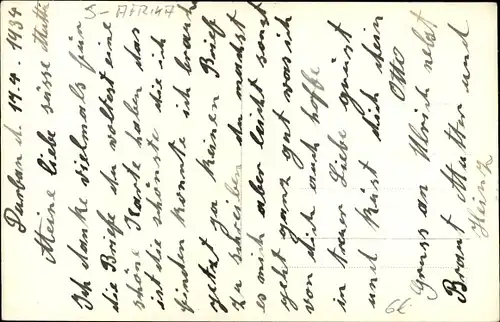 S-AFRIKA
Durban d. 19.4.1934
Meine liebe süsse Mutti
Ich danke vielmals für
die Briefe du wolltest eine
schöne Karte haben das
ist die schönste die ich
finden konnte ich brauche
getzt ja keinen Brief
zu schreiben du machst
es mich aber leicht sonst
geht ganz gut was ich
von dich auch hoffe
in treuer Liebe grüst
und küst dich dein
Otto
Gruss an Ulrich nebst
Braut Mutter und
Heinz
6€